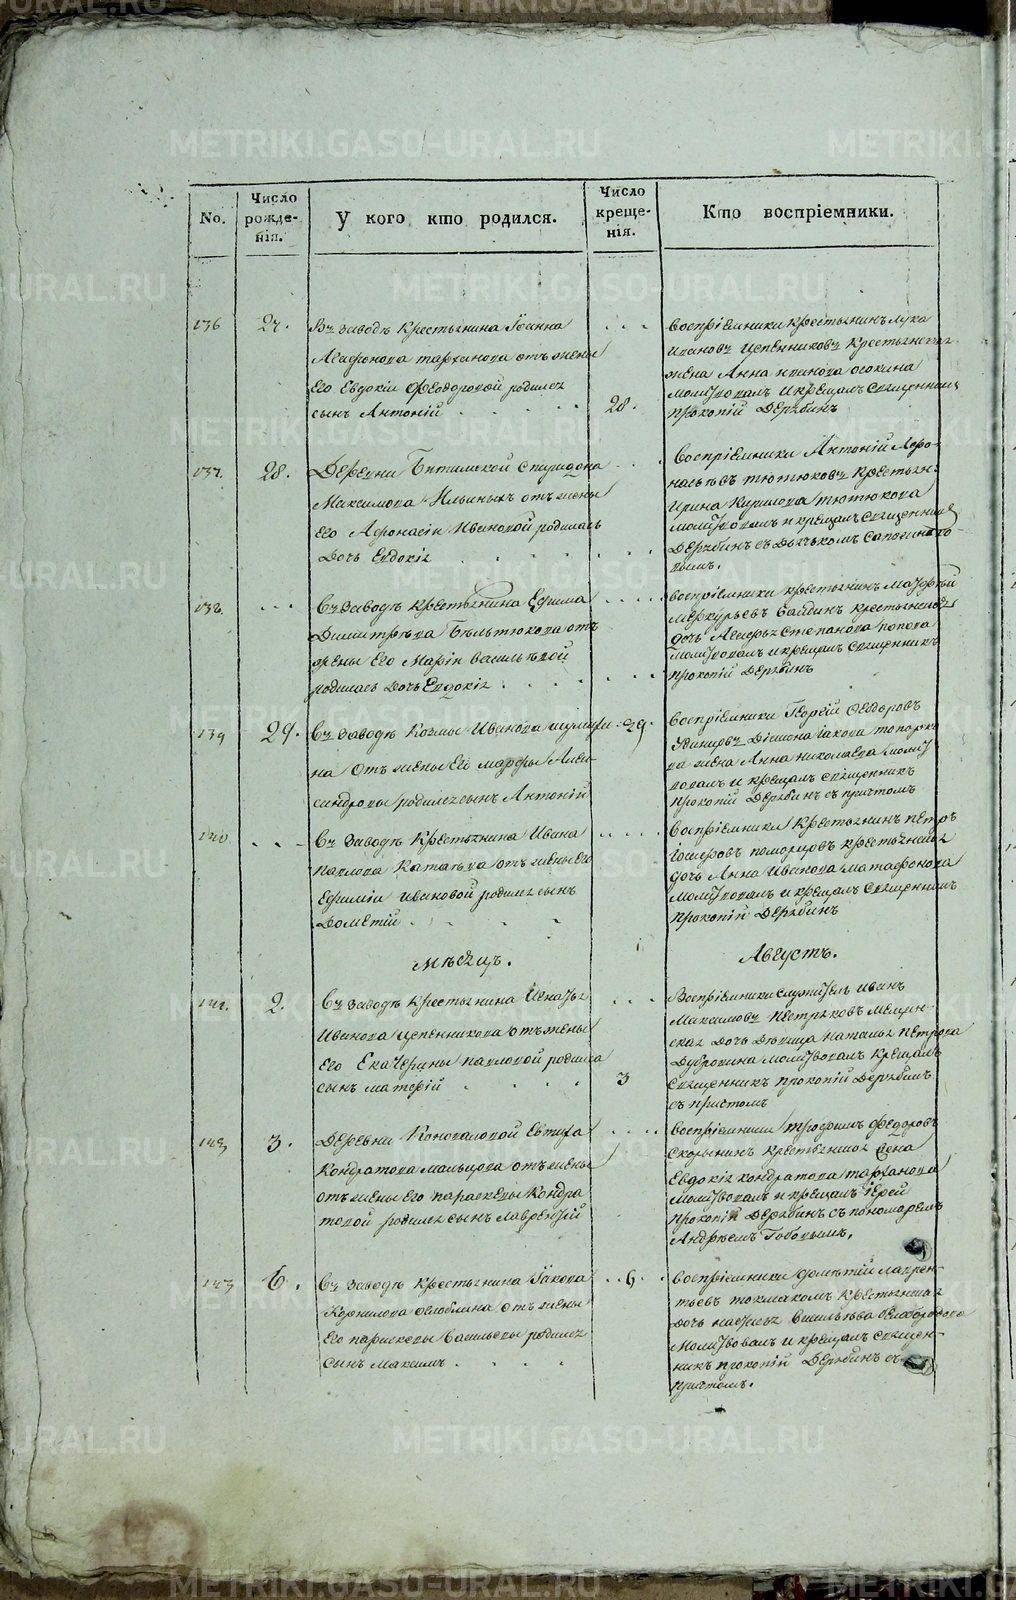 No.
Число рожде- нія.
У кого кто родился.
Число креще- нія.
Кто воспріемники.
136
27.
Въ заводѣ Крестьянина Іоанна
Агафонова тарханова отъ жены
Его Евдокіи Феодоровой родился
сынъ Антоній
28.
Воспріемники крестьянинъ лука
Ивановъ
жена Анна
молитвовалъ и крещалъ священникъ
прокопій Дерябинъ
137.
28.
Деревни Битимской спиридона
Максимова Ильиныхъ отъ жены
его Афонасіи Ивановой родилась
Дочь Евдокія
Воспріемники Антоній Афо-
насьевъ тютюковъ крестьян.
Ирина Кирилова тютюкова
молитвовалъ и крещалъ священникъ
Дерябинъ съ дьячькомъ
138.
Въ Заводѣ крестьянина Ефима
Димитрѣва Бѣльтюкова отъ
жены Его Маріи васильѣвой
родилась дочь Евдокія
воспріемники крестьянинъ матфѣй
Меркурьевъ крестьянская
дочь степанова попова
молитвовалъ и крещалъ священникъ
прокопій Дерябинъ
139
29.
Въ Заводѣ Козмы Иванова
на отъ жены Его марфы Алек-
сандровы родился сынъ Антоній
29.
Воспріемники Георгій Феодоровъ
Дьякона іакова топорко
ва жена Анна николаева молит
вовалъ и крещалъ священникъ
прокопій Дерябинъ съ причтомъ
140
Въ Заводѣ Крестьянина Ивана
павлова Катаѣва отъ жены его
Ефиміи Ивановой родился сынъ
Дометій
Воспріемники крестьянинъ петръ
крестьянская
дочь Анна Иванова матафонова
молитвовалъ и крещалъ священникъ
прокопій Дерябинъ
Мѣсяцъ.
Августъ.
141.
2.
Въ Заводѣ крестьянина Игнатья
Иванова отъ жены
его Екатерины павловой родился
сынъ матфій
3
Воспріемники служитель иванъ
Максимовъ пестряковъ мещан-
ская дочь дѣвица наталья петрова
Дубровина молитвовалъ крещалъ
священникъ прокопій Дерябинъ
съ причтомъ
142
3.
Деревни Коноваловой
Кондратова мальцова отъ жены
отъ жены его параскевы Кондра
товой родился сынъ лаврентій
воспріемники трофимъ Федоровъ
скорынинъ крестьянская жена
Евдокія кондратова тарханова
молитвовалъ и крещалъ іерей
прокопій Дерябинъ съ пономаремъ
Андрѣемъ
143
6.
Въ Заводѣ Крестьянина Іакова
Корнилова оглоблина отъ жены
Его параскевы васильевы родился
сынъ Максимъ
6.
воспріемники дометій лаврен-
тьевъ крестьянская
дочь васильѣва
молитвовалъ и крещалъ священ-
никъ прокопій Дерябинъ съ
причтомъ.
METRIKI.GASO-URAL.RU